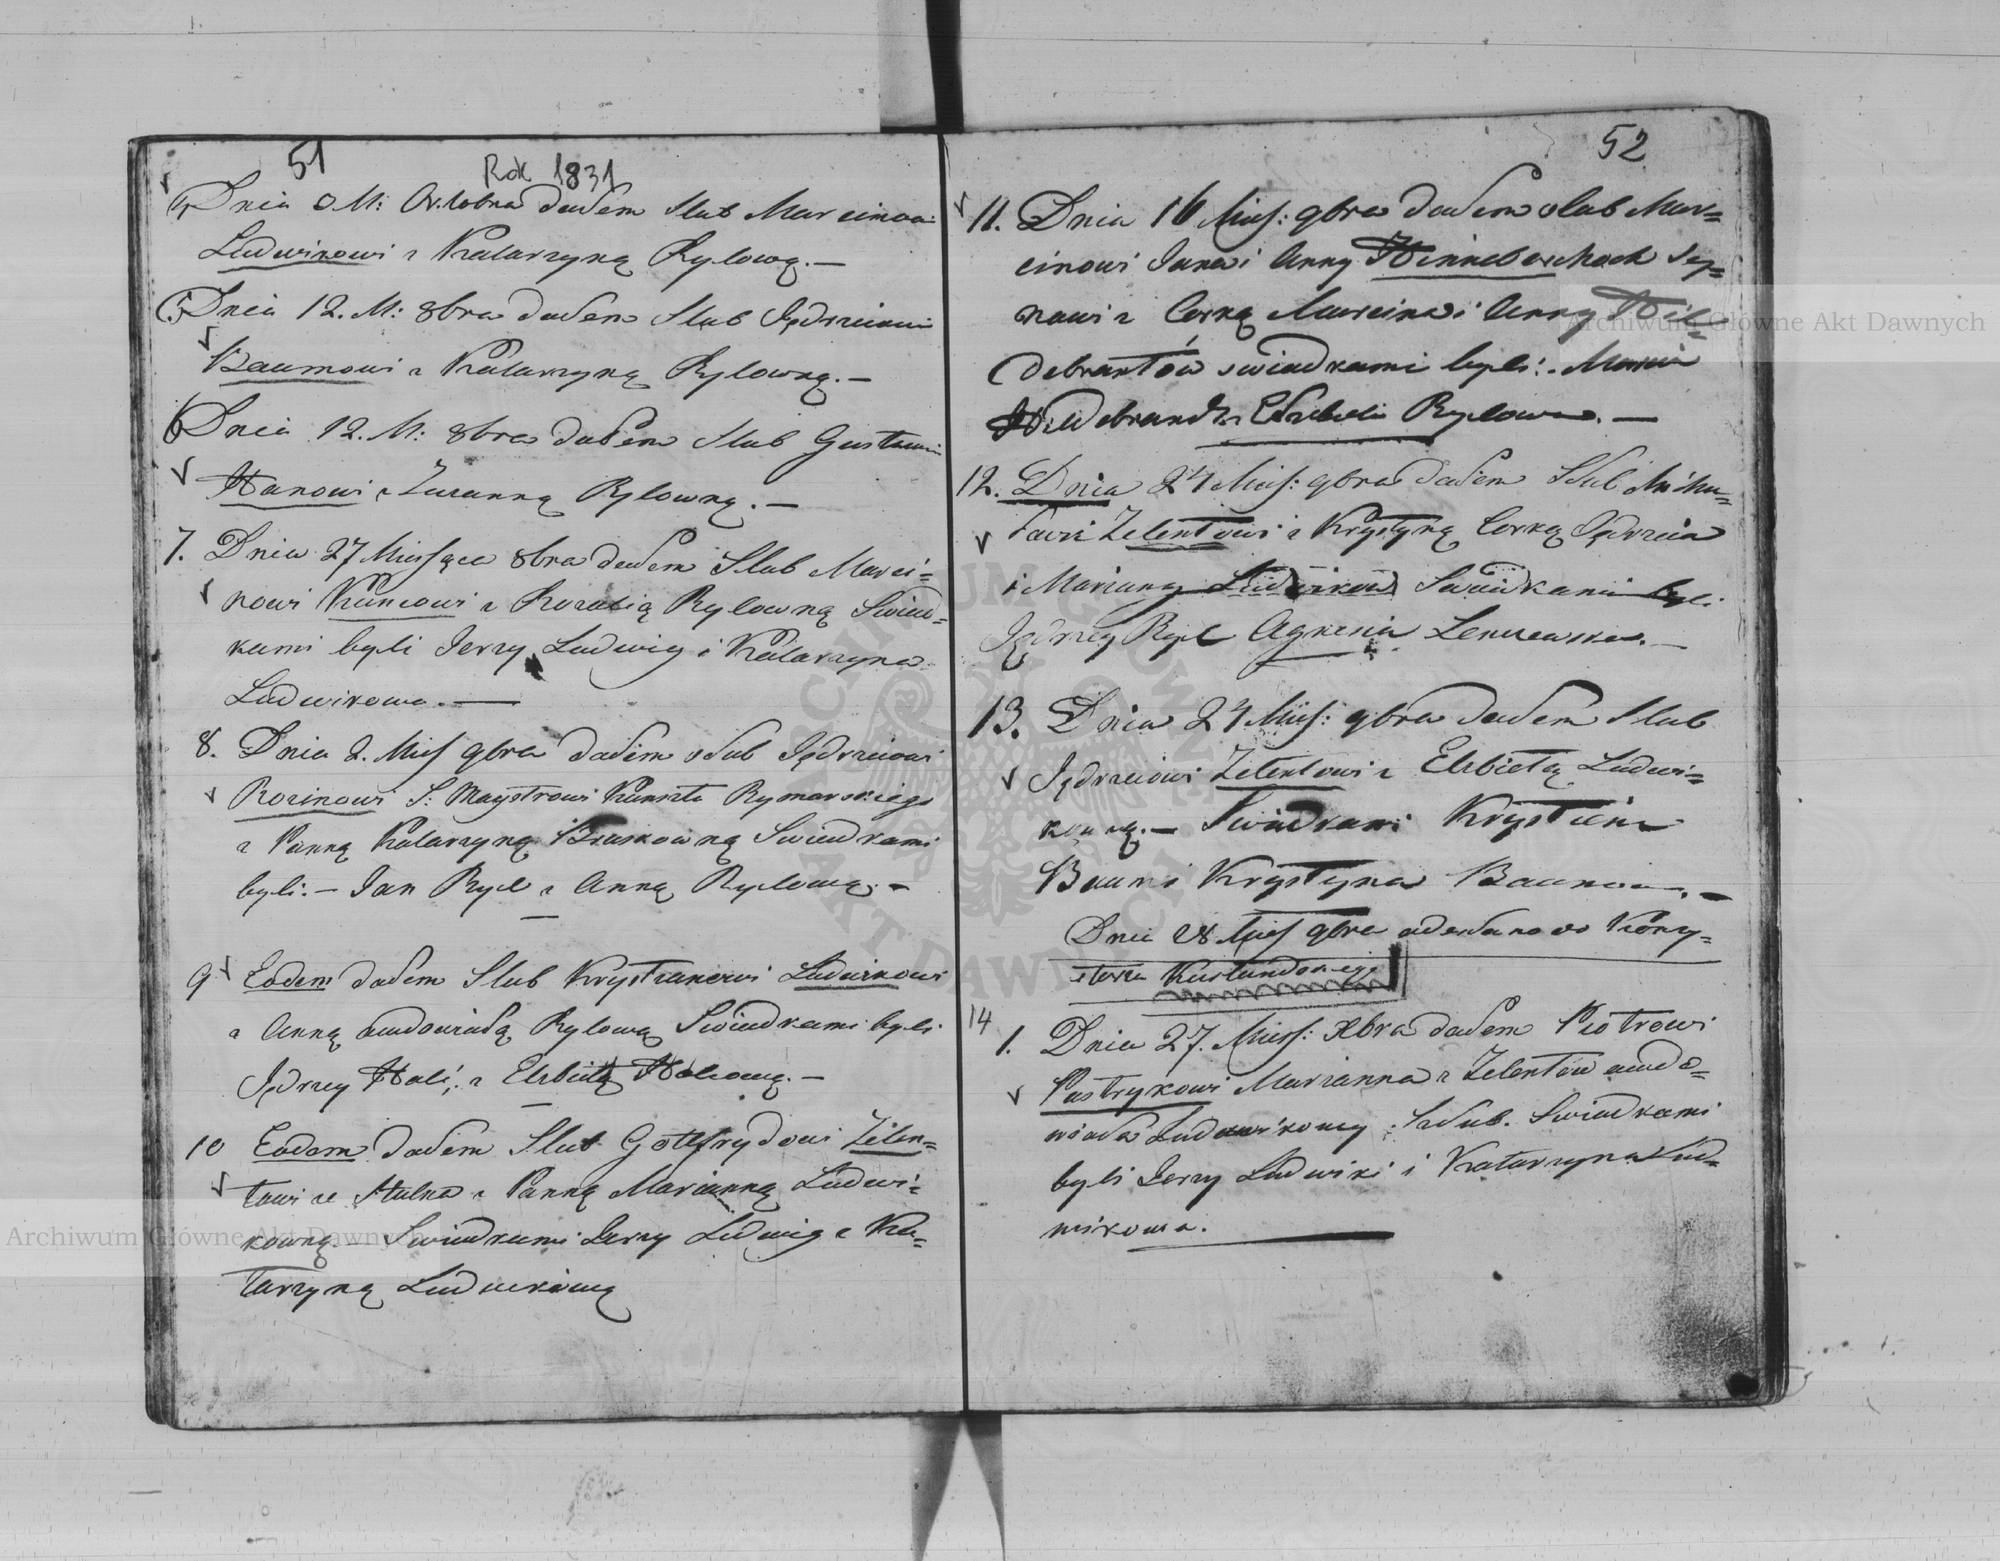 51
Rok 1831
Dnia M: Oktobra dałem Slub Marcinowi
Ludwikowi z Katarzyną Rylową. —
5. Dnia 12. M: 8bra dałem Slub Jędrzeiowi
Baumowi z Katarzyną Rylowną. —
6 Dnia 12. M: 8bra dałem Slub Gustawowi
Hanowi z Zuzanną Rylowną. —
7. Dnia 27 Miesząca 8bra dałem Slub Marci=
nowi Kuncowi z Rozalią Rylowną Swiad=
kami byli Jerzy Ludwig i Katarzyna
Ludwikowa. —
8. Dnia 2. Mies 9bra dałem slub Jędrzeiowi
Rozinowi S: Maystrowi Kunsztu Rymarskiego
z Panną Katarzyną Swiadkami
byli. — Jan Ryl z Anną Rylową. —
9 Eodem dałem Slub Krystianowi Ludwikowi
z Anną owdowiałą Rylową Swiadkami byli
Jędrzey Hali, z Elzbietą Halową. —
10 Eodem dałem Slub Gottfrydowi Zelen=
towi ze Stulna z Panną Marianną Ludwi=
kowną. — Swiadkami Jerzy Ludwig z Ka=
tarzyną Ludwikową
52
11. Dnia 16 Mies: 9bra dałem slub Mar=
cinowi Jana i Anny Hinneborchoch Sy=
nowi z Corką Marcina i Anny Hil=
debrantów swiadkami byli: Marcin
Hildebrandt z Elzbieta Rylowa. —
12. Dnia 24 Mies: 9bra dałem Slub Miko=
łaiowi Zelentowi z Krystyną Corką Jędrzeia
i Marianny Ludwików Swiadkami byli
Jędrzey Ryl Agnesia —
13. Dnia 24 Mies: 9bra dałem Slub
Jędrzeiowi Zelentowi z Elzbietą Ludwi=
kowną. — Swiadkami Krystian
Baum i Krystyna Baumowa. —
Dnia 28 Mies 9bra odesłano do Konsy=
storza
14
1. Dnia 27. Miess: Xbra dałem Piotrowi
Pastrykowi Marianna z Zelentów owdo=
wiała Ludwikowy Slub. Swiadkami
byli Jerzy Ludwik i Katarzyna Lud=
wikowa.
Archiwum Główne Akt Dawnych
Archiwum Główne Akt Dawnych
ARCHIWUM GŁÓWNE AKT DAWNYCH